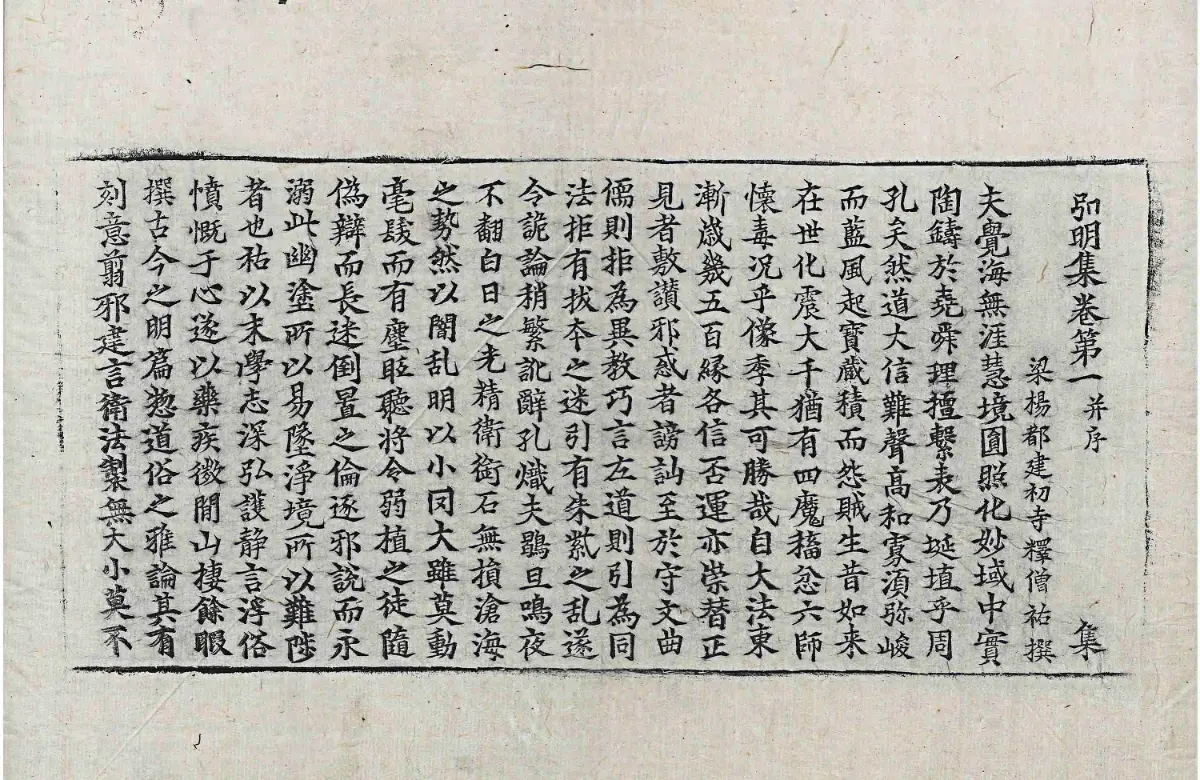 弘明集卷第一 并序 集
梁楊都建初寺釋僧祐撰
夫覺海無涯慧境圓照化妙域中實
陶鑄於堯舜理擅繫表乃埏埴乎周
孔矣然道大信難聲高和寡湏弥峻
而藍風起寶藏積而怨賊生昔如来
在世化震大千猶有四魔稸忿六師
懷毒况乎像季其可勝哉自大法東
漸歳幾五百縁各信否運亦崇替正
見者敷讃邪惑者謗訕至於守文曲
儒則拒為異教巧言左道則引為同
法拒有拔夲之迷引有朱紫之乱遂
令詭論稍繁訛辭孔熾夫鶡旦鳴夜
不翻白日之光精衛銜石無損滄海
之勢然以闇乱明以小罔大雖莫動
毫髮而有塵眂聽將令弱植之徒隨
偽辯而長迷倒置之倫逐邪説而永
溺此幽塗所以易墜淨境所以難陟
者也祐以末學志深弘護静言浮俗
憤慨于心遂以藥疾微間山棲餘暇
撰古今之明篇惣道俗之雅論其有
刻意翦邪建言衛法製無大小莫不